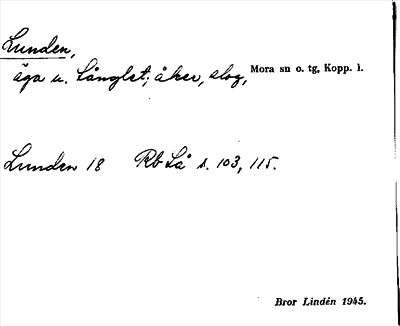 Lunden,
äga u. Långlet; åker, slog, Mora sn o. tg, Kopp. l.
Lunden 18 Rb Lå s. 103, 115.
Bror Lindén 1945.